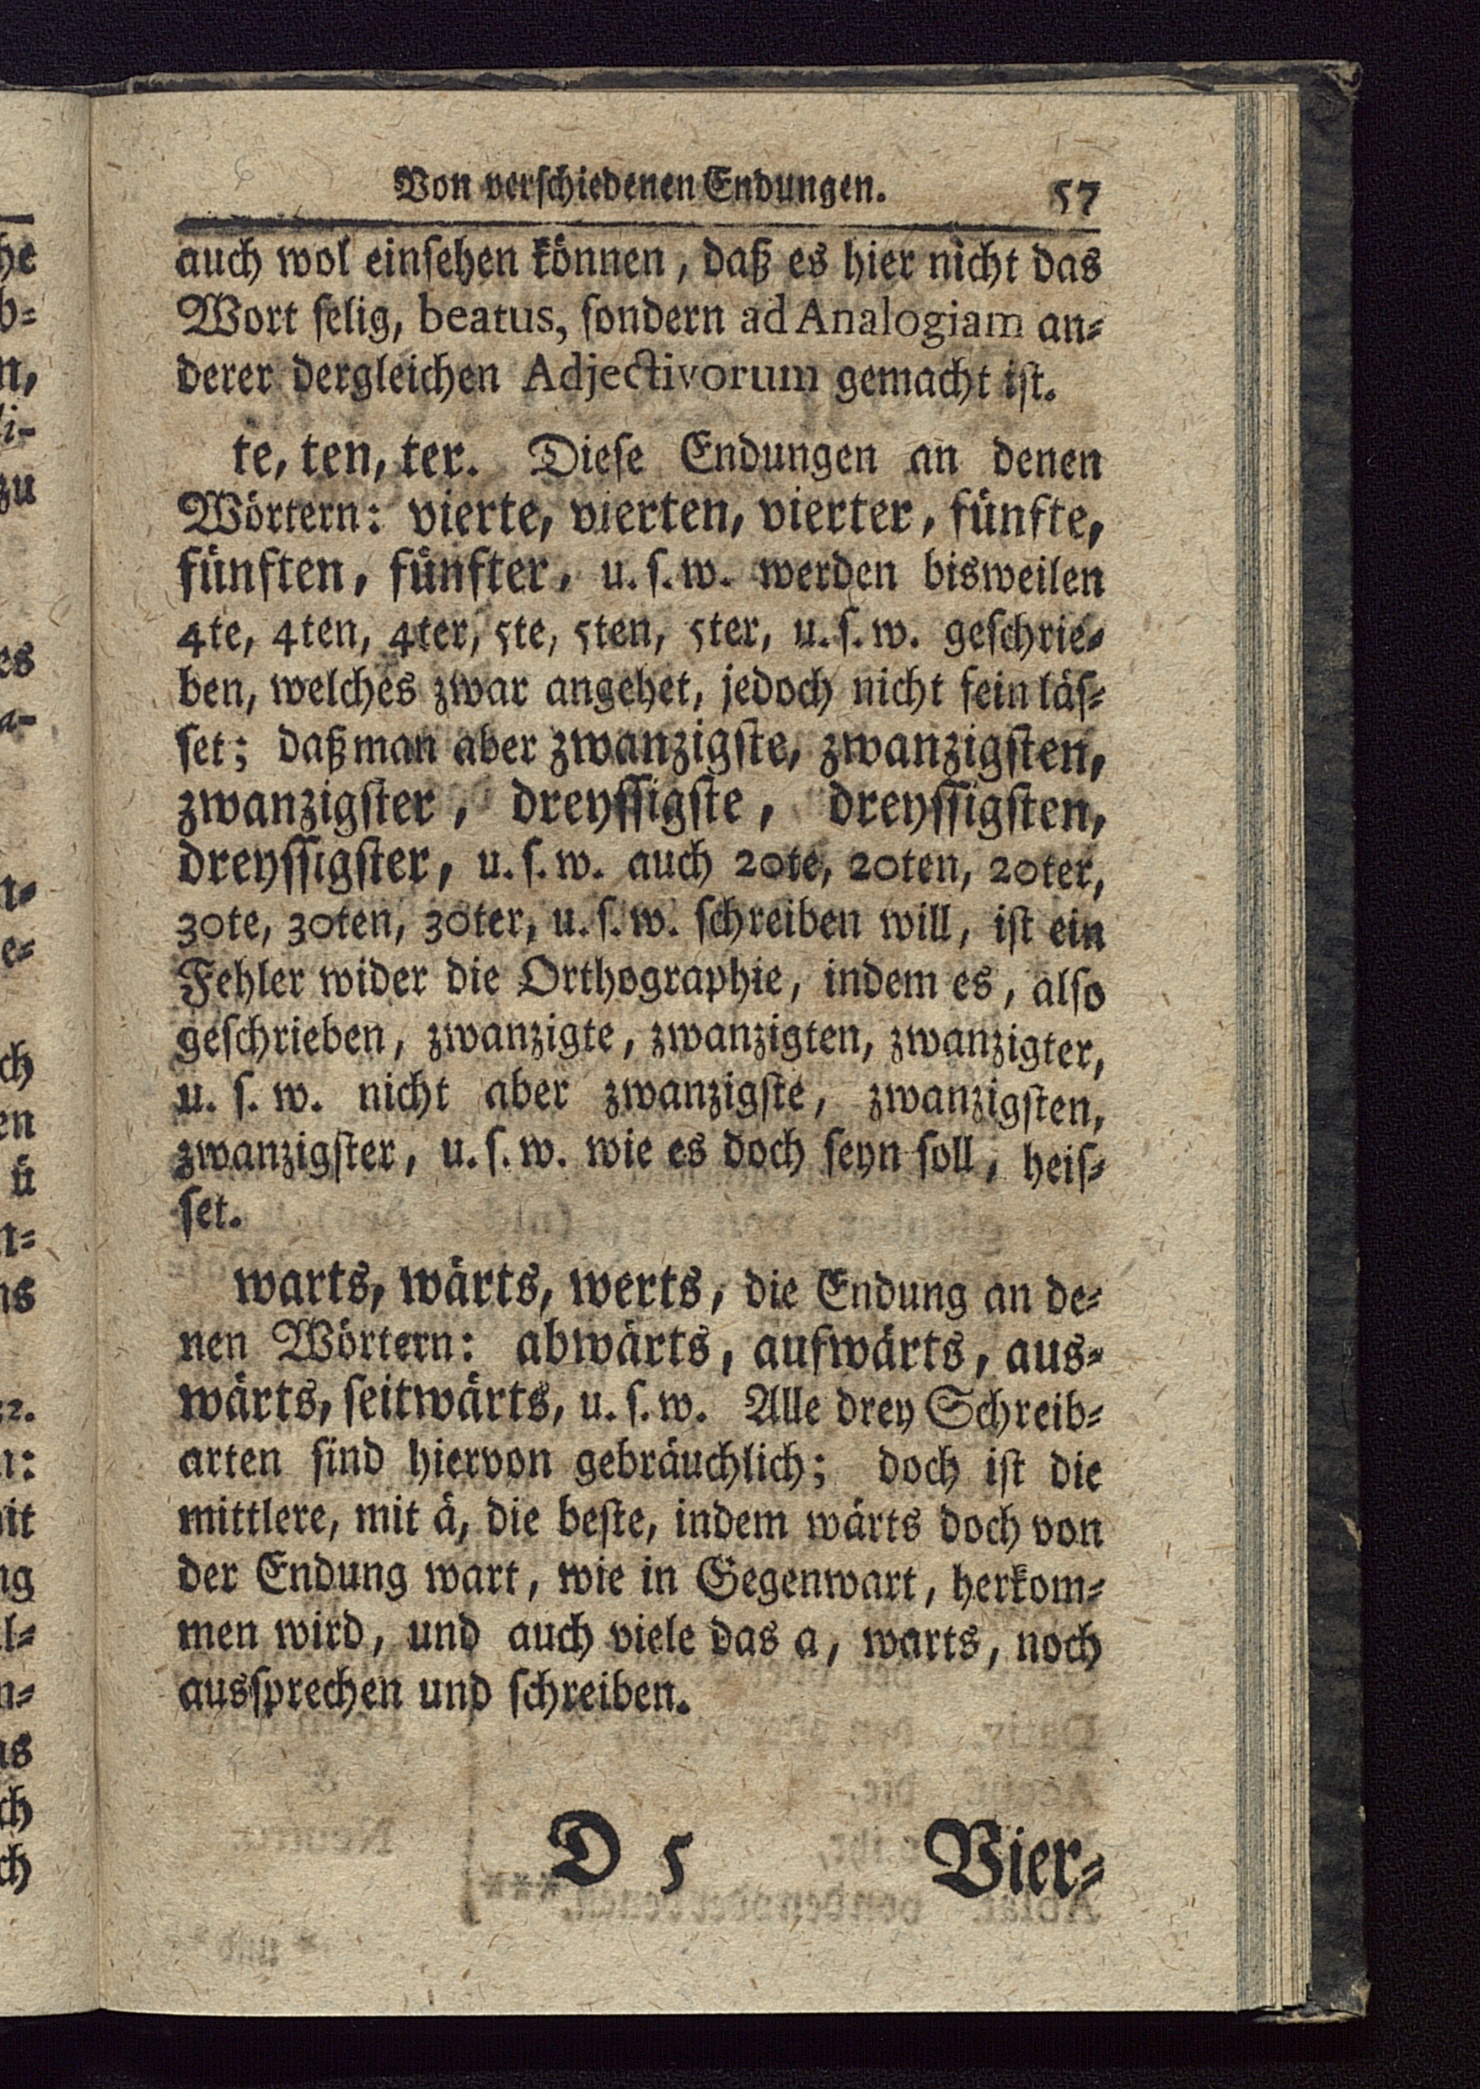 Von verschiedenen Endungen. 57
auch wol einsehen können, daß es hier nicht das
Wort selig, beatus, sondern ad Analogiam an-
derer dergleichen Adjectivorum gemacht ist.
te, ten, ter. Diese Endungen an denen
Wörtern: vierte, vierten, vierter, fünfte,
fünften, fünfter, u. s. w. werden bisweilen
4te, 4ten, 4ter, 5te, 5ten, 5ter, u. s. w. geschrie-
ben, welches zwar angehet, jedoch nicht fein läs-
set; daß man aber zwanzigste, zwanzigsten,
zwanzigster, dreyssigste, dreyssigsten,
dreyssigster, u. s. w. auch 20te, 20ten, 20ter,
30te, 30ten, 30ter, u. s. w. schreiben will, ist ein
Fehler wider die Orthographie, indem es, also
geschrieben, zwanzigte, zwanzigten, zwanzigter,
u. s. w. nicht aber zwanzigste, zwanzigsten,
zwanzigster, u. s. w. wie es doch seyn soll, heis-
set.
warts, wärts, werts, die Endung an de-
nen Wörtern: abwärts, aufwärts, aus-
wärts, seitwärts, u. s. w. Alle drey Schreib-
arten sind hiervon gebräuchlich; doch ist die
mittlere, mit ä, die beste, indem wärts doch von
der Endung wart, wie in Gegenwart, herkom-
men wird, und auch viele das a, warts, noch
aussprechen und schreiben.
D 5 Vier-